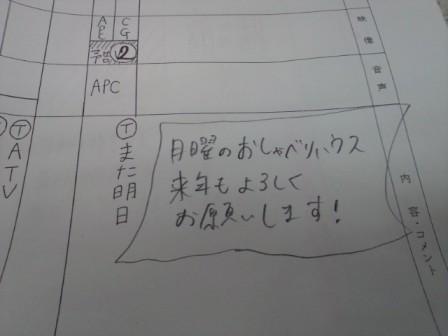 映像
音声
内容・コメント
CG
②
APC
予告
APC
月曜のおしゃべりハウス
来年もよろしく
お願いします!
Ⓣまた明日
Ⓣ
ⓉATV